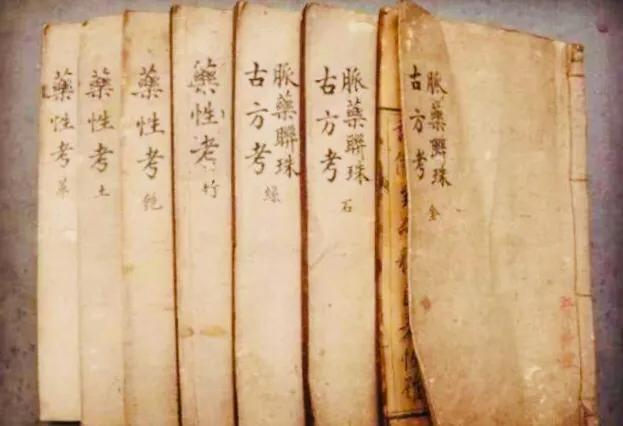 脈藥聯珠
古方考 金
脈藥聯珠
古方考
石
脈藥聯珠
古方考
絲
藥性考 竹
藥性考 匏
藥性考 土
藥性考 革